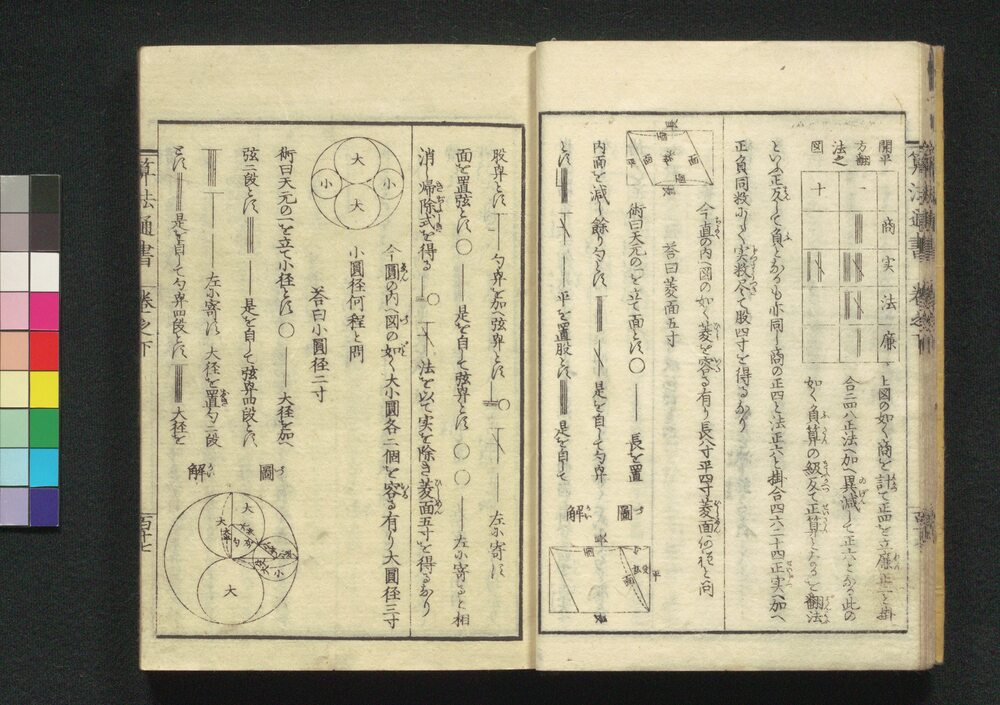 開平
方翻
法之
図
商
実
法
廉
上図の如く商を計て正四を立廉正一を掛
合二四八正法へ加へ異減して正六となる此の
如く負算の級反て正算となるを翻法
といふ正反して負となるも亦同し商の正四と法正六と掛合四六二十四正実へ加へ
正負同数にして実数尽て股四寸を得るなり
今直の内へ図の如く菱を容る有り長八寸平四寸菱面何程と問
答曰菱面五寸
術曰天元の一を立て面とす〇 長を置
内面を減し餘り勾とす 是を自して勾冪
とす 平を置股とす 是を自して
圖
解
股冪とす 勾冪を加へ弦冪とす 左に寄す
面を置弦とす〇 是を自て弦冪とす〇〇 左に寄ると相
消し帰除式を得る 法を以て実を除き菱面五寸を得るなり
今圓の内へ図の如く大小圓各二個を容る有り大圓径三寸
小圓径何程と問
答曰小圓径二寸
術曰天元の一を立て小径とす〇 大径を加へ
弦二段とす 是を自して弦冪四段とす
左に寄す 大径を置勾二段
とす 是を自して勾冪四段とす 大径を
圖
解
大
大
小
小
大
大
小
算法通書 巻之下
百十七